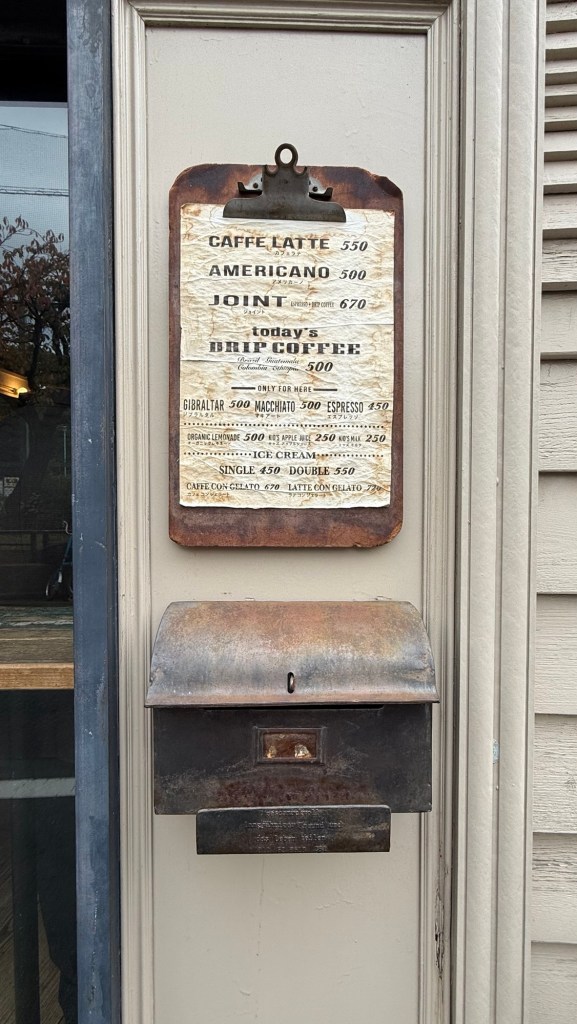 CAFFE LATTE 550
カフェラテ
AMERICANO 500
アメリカーノ
JOINT ESPRESSO + DRIP COFFEE 670
ジョイント
today's
DRIP COFFEE
Brazil Guatemala
Colombia Ethiopia 500
ONLY FOR HERE
GIBRALTAR 500 MACCHIATO 500 ESPRESSO 450
ジブラルタル マキアート エスプレッソ
ORGANIC LEMONADE 500 KID'S APPLE JUICE 250 KID'S MILK 250
ICE CREAM
SINGLE 450 DOUBLE 550
CAFFE CON GELATO 670 LATTE CON GELATO 770